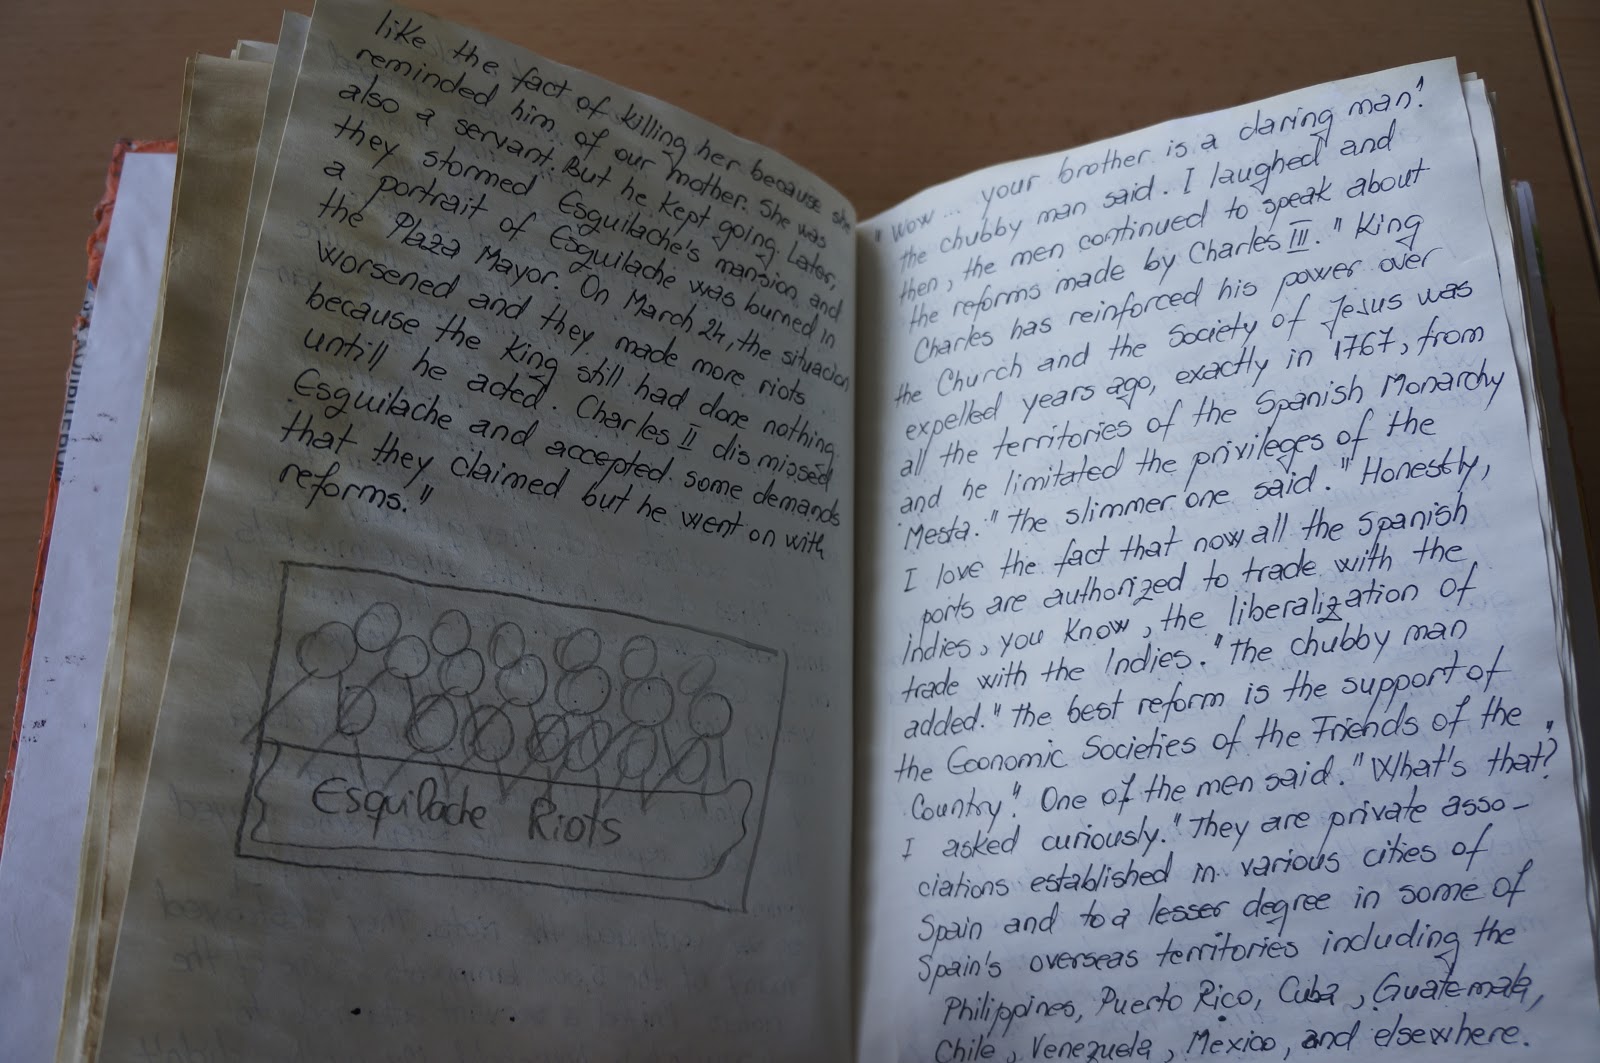 like the fact of killing her because she
reminded him of our mother. She was
also a servant. But he kept going. Later,
they stormed Esquilache's mansion and
a portrait of Esquilache was burned in
the Plaza Mayor. On March 24, the situacion
worsened and they made more riots
because the King still had done nothing
untill he acted. Charles II dismissed
Esquilache and accepted some demands
that they claimed but he went on with
reforms."
Esquilache Riots
"Wow... your brother is a daring man!
the chubby man said. I laughed and
then, the men continued to speak about
the reforms made by Charles III. "King
Charles has reinforced his power over
the Church and the Society of Jesus was
expelled years ago, exactly in 1767, from
all the territories of the Spanish Monarchy
and he limitated the privileges of the
Mesta." the slimmer one said. "Honestly,
I love the fact that now all the Spanish
ports are authorized to trade with the
Indies, you know, the liberalization of
trade with the Indies." the chubby man
added. "the best reform is the support of
the Economic Societies of the Friends of the
Country". One of the men said. "What's that?"
I asked curiously. "They are private asso-
ciations established in various cities of
Spain and to a lesser degree in some of
Spain's overseas territories including the
Philippines, Puerto Rico, Cuba, Guatemala,
Chile, Venezuela, Mexico, and elsewhere.